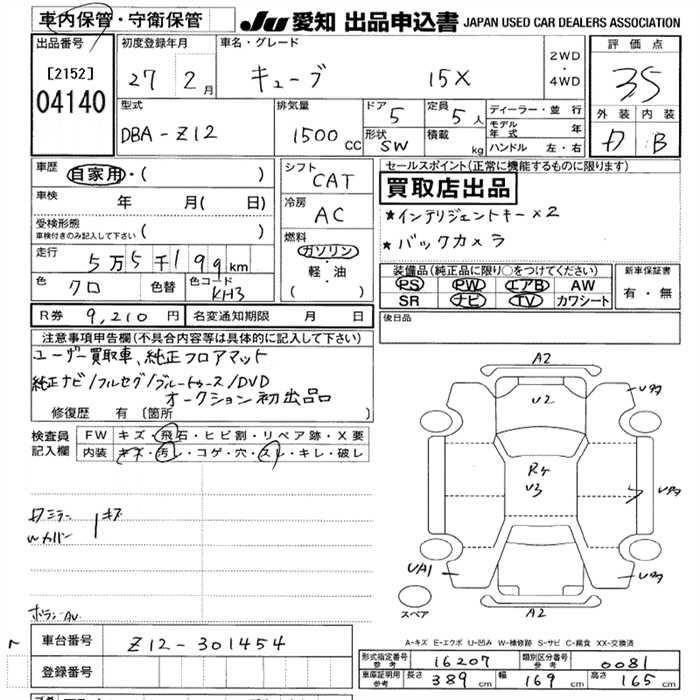 車内保管・守衛保管
JU 愛知 出品申込書 JAPAN USED CAR DEALERS ASSOCIATION
出品番号
[2152]
04140
初度登録年月
27 2月
車名・グレード
キューブ 15X
2WD
・
4WD
評価点
3.5
外装 内装
B
型式
DBA-Z12
排気量
1500CC
ドア 5
形状 SW
定員 5人
積載 kg
ディーラー・並行
モデル年式 年
ハンドル 左・右
車歴
自家用・( )
車検 年 月( 日)
受検形態
車検付きのみ記入して下さい ( )
走行
5万5千199km
色 クロ 色替 色コード KH3
シフト
CAT
冷房
AC
燃料
ガソリン
・
軽・油
( )
セールスポイント(正常に機能するものに限ります)
買取店出品
★インテリジェントキー×2
★バックカメラ
装備品(純正品に限り○をつけてください)
PS PW エアB AW
SR ナビ TV カワシート
新車保証書
有・無
R券 9,210円 名変通知期限 月 日
後日品
注意事項申告欄(不具合内容等は具体的に記入して下さい)
ユーザー買取車、純正フロアマット
純正ナビ/フルセグ/ブルートゥース/DVD
オークション初出品
修復歴 有 [箇所 ]
検査員
記入欄
FW キズ・飛石・ヒビ割・リペア跡・X要
内装 キズ・汚レ・コゲ・穴・スレ・キレ・破レ
A2
U2
Rケ
U3
UA1
A2
スペア
A-キズ E-エクボ U-凹み W-補修跡 S-サビ C-腐食 XX-交換済
車台番号 Z12-301454
登録番号
形式指定番号
参考
16207
類別区分番号
参考
0081
車庫証明用
参考
長さ 389cm 幅 169cm 高さ 165cm